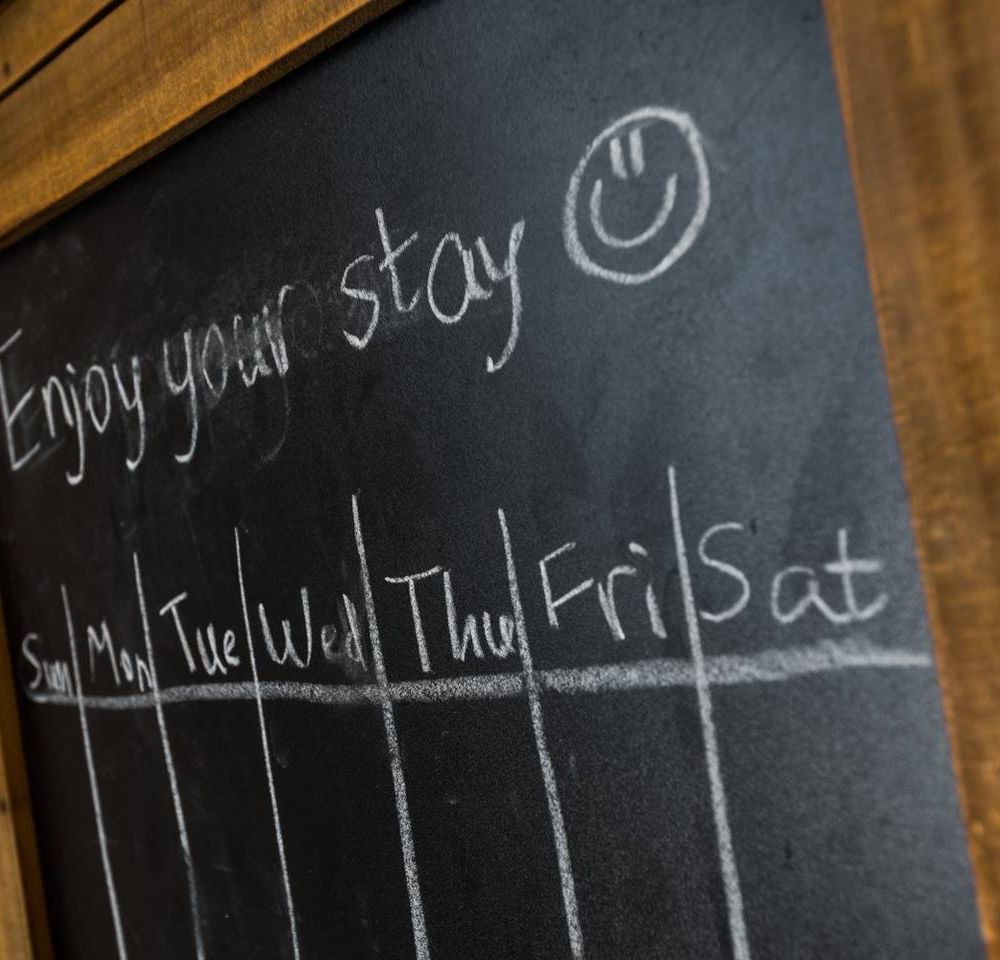 Enjoy your stay
Sun Mon Tue Wed Thu Fri Sat